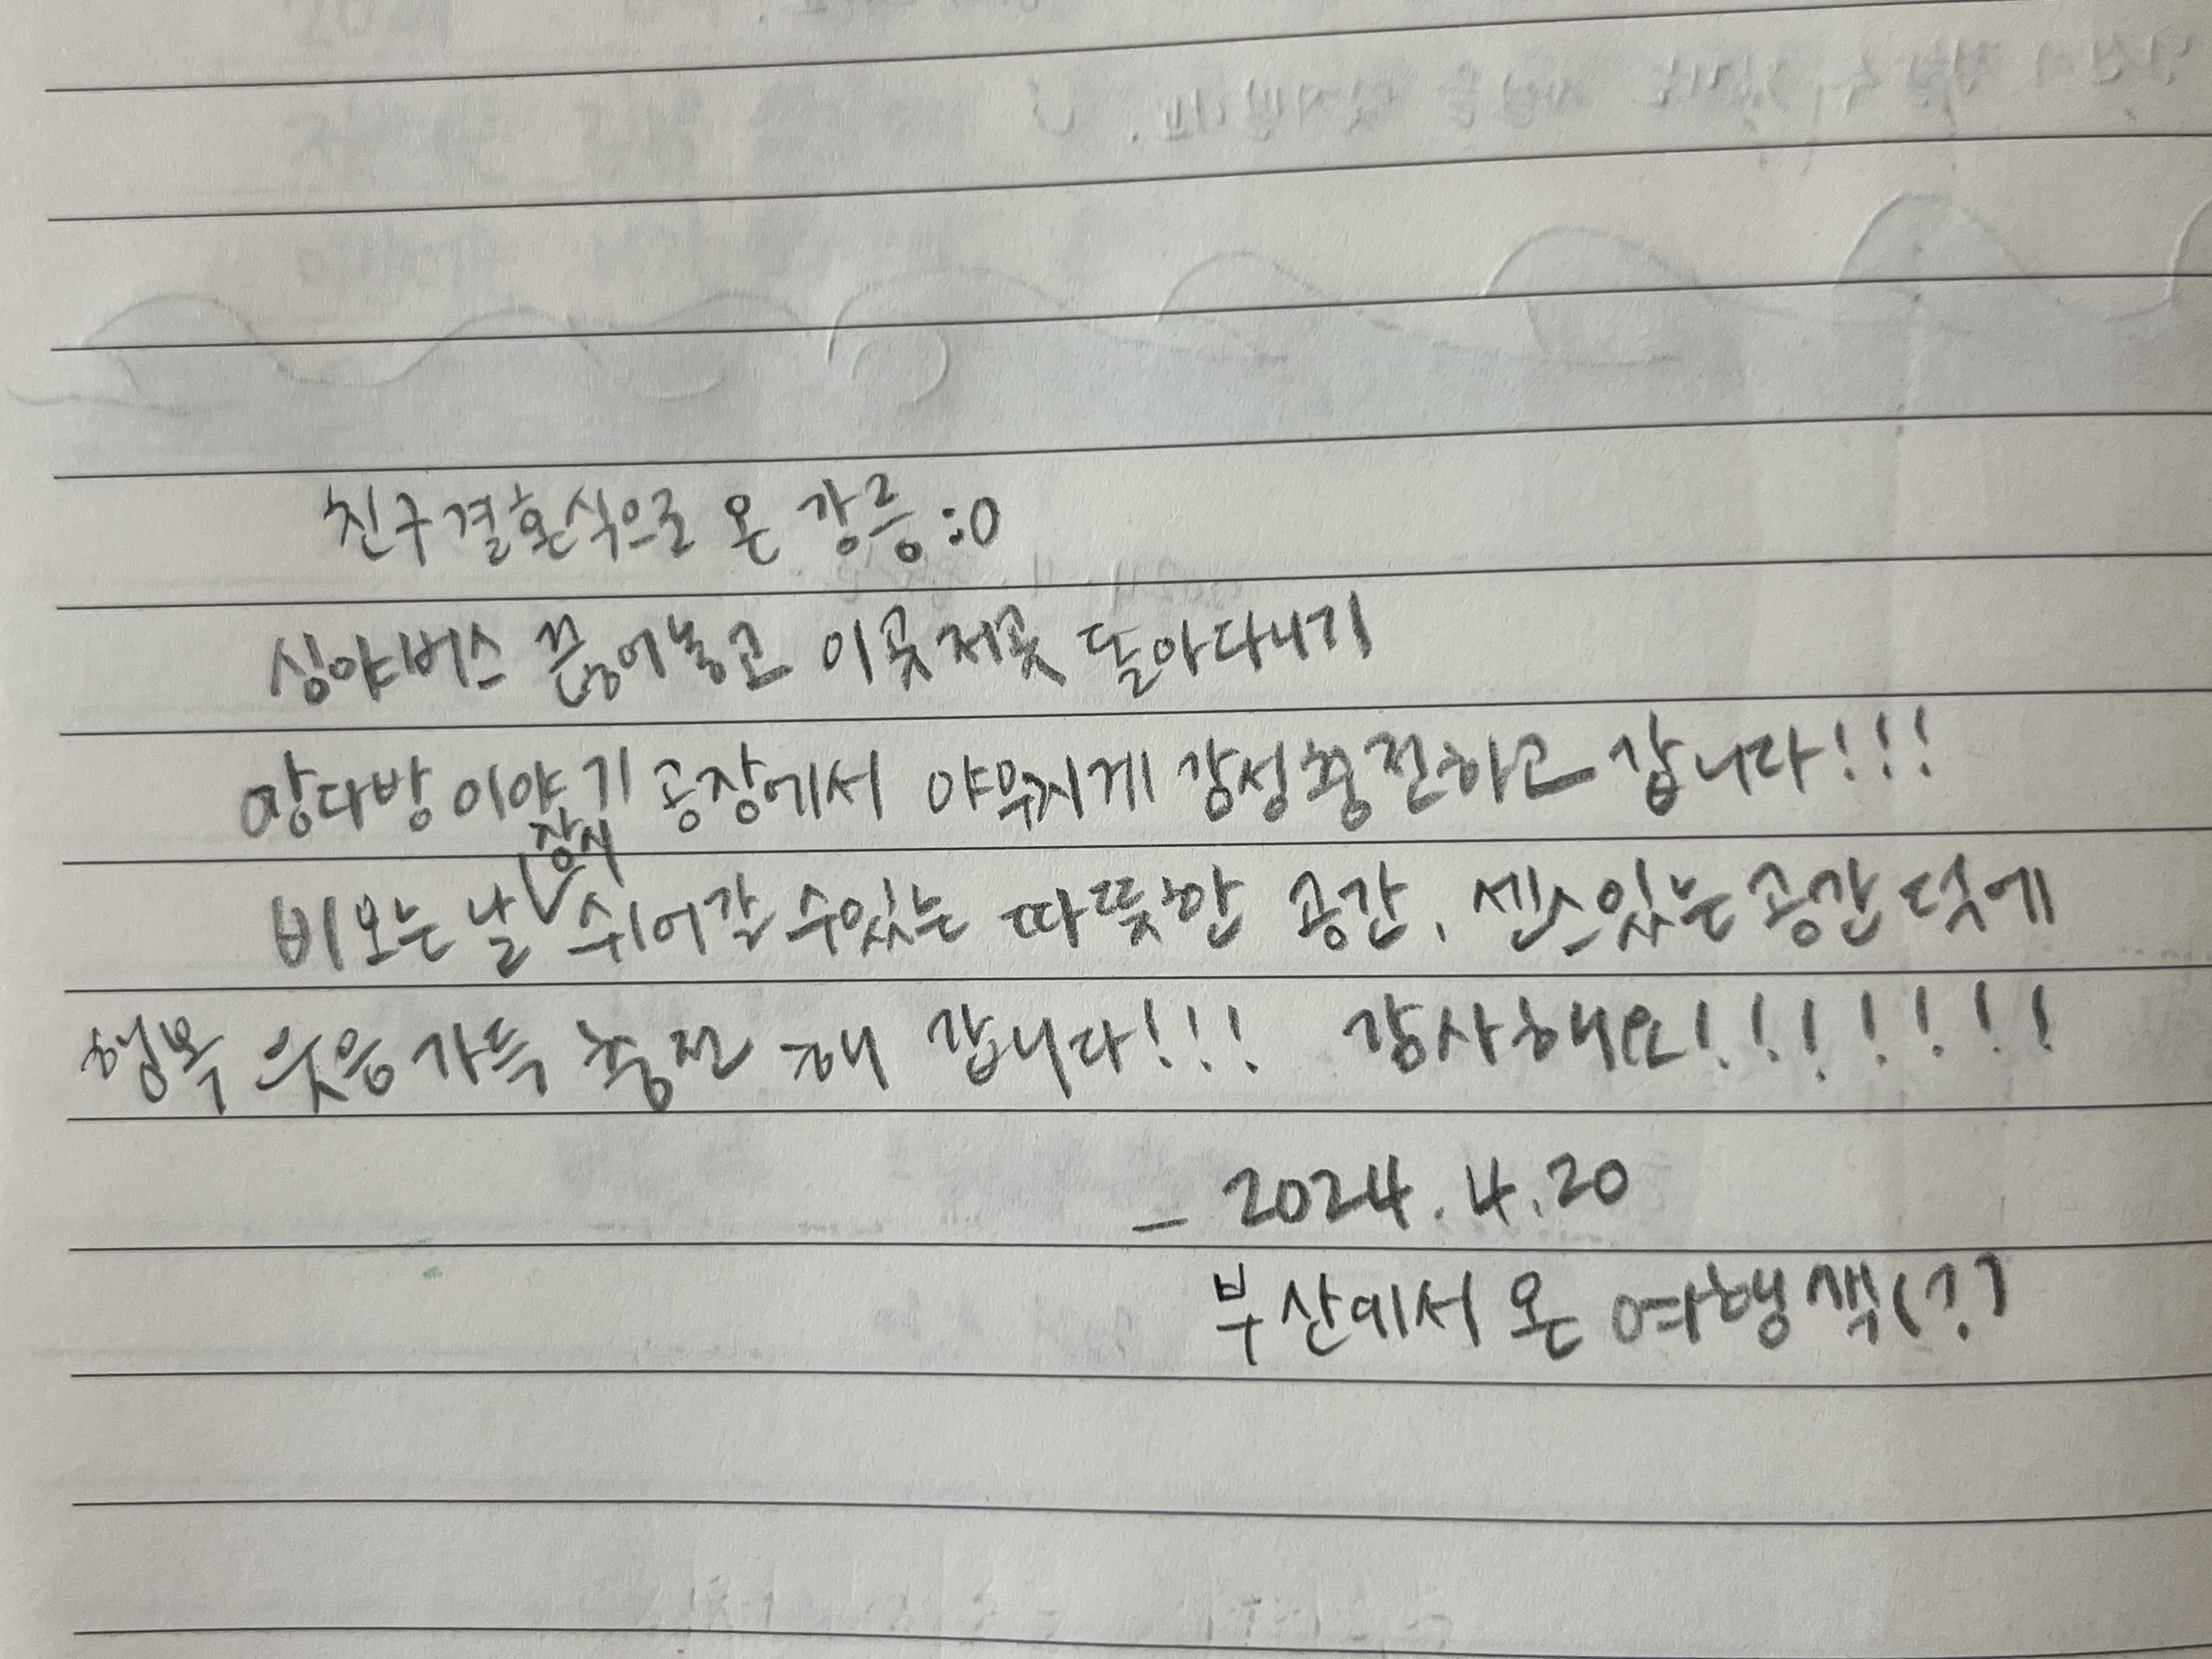 친구결혼식으로 온 강릉:0
심야버스 끊어놓고 이곳저곳 돌아다니기
망다방 이야기 공장에서 야무지게 감성충전하고 갑니다!!!
비오는 날 잠시 쉬어갈 수있는 따뜻한 공간, 센스있는 공간 덕에
행복 웃음 가득 충전 해 갑니다!!! 감사해요!!!!!!!
- 2024.4.20
부산에서 온 여행객(?)